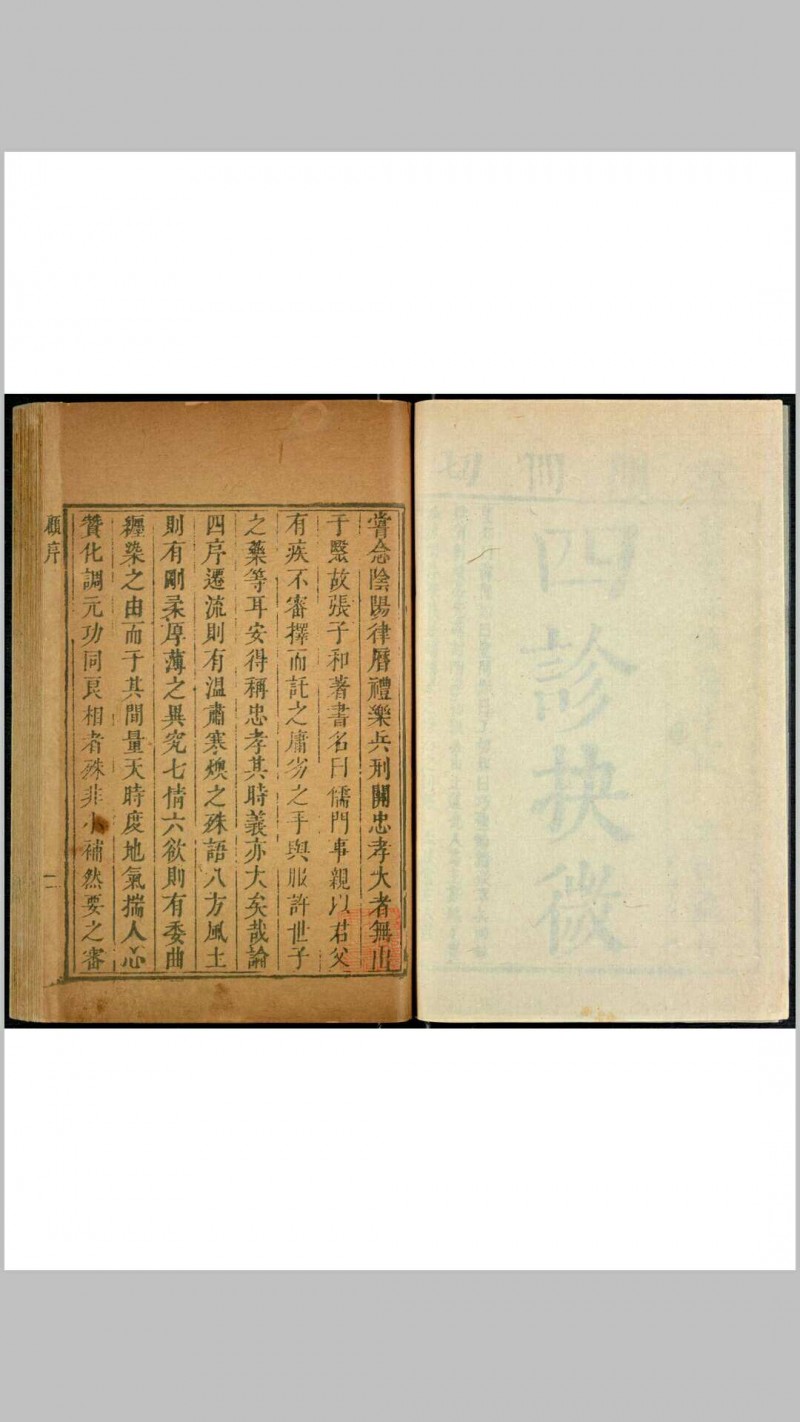 四診抉微
嘗念陰陽律曆禮樂兵刑關忠孝大者無出
于毉故張子和著書名曰儒門事親以君父
有疾不審擇而託之庸劣之手與服許世子
之藥等耳安得稱忠孝其時義亦大矣哉論
四序遷流則有溫肅寒燠之殊語八方風土
則有剛柔厚薄之異究七情六欲則有委曲
纏染之由而于其間量天時度地氣揣人心
贊化調元功同良相者殊非小補然要之審
顧序